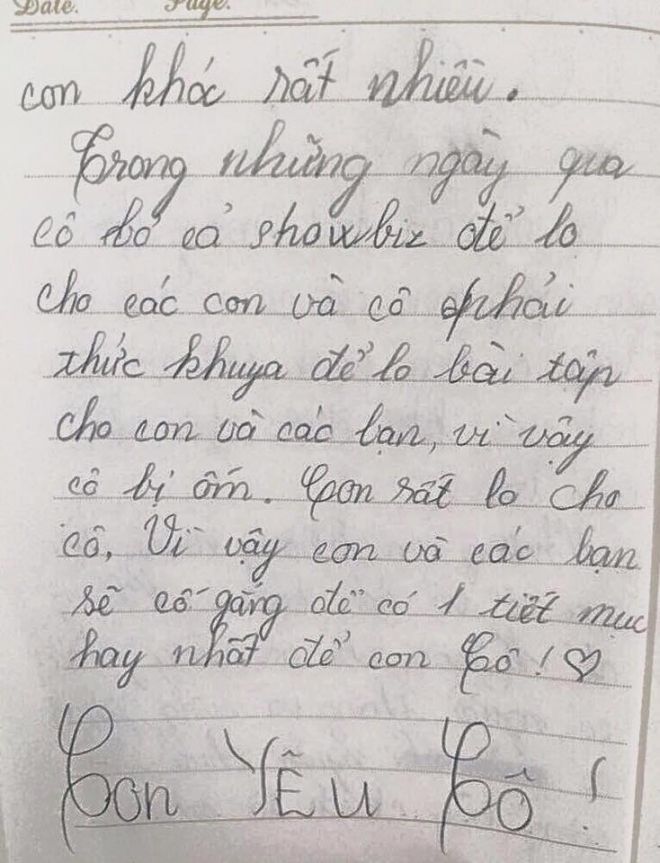 Date. Page.
con khóc rất nhiều.
Trong những ngày qua
cô bỏ cả showbiz để lo
cho các con và cô phải
thức khuya để lo bài tập
cho con và các bạn, vì vậy
cô bị ốm. Con rất lo cho
cô, Vì vậy con và các bạn
sẽ cố gắng để có 1 tiết mục
hay nhất để con Cô! ♡
Con YÊU Cô!